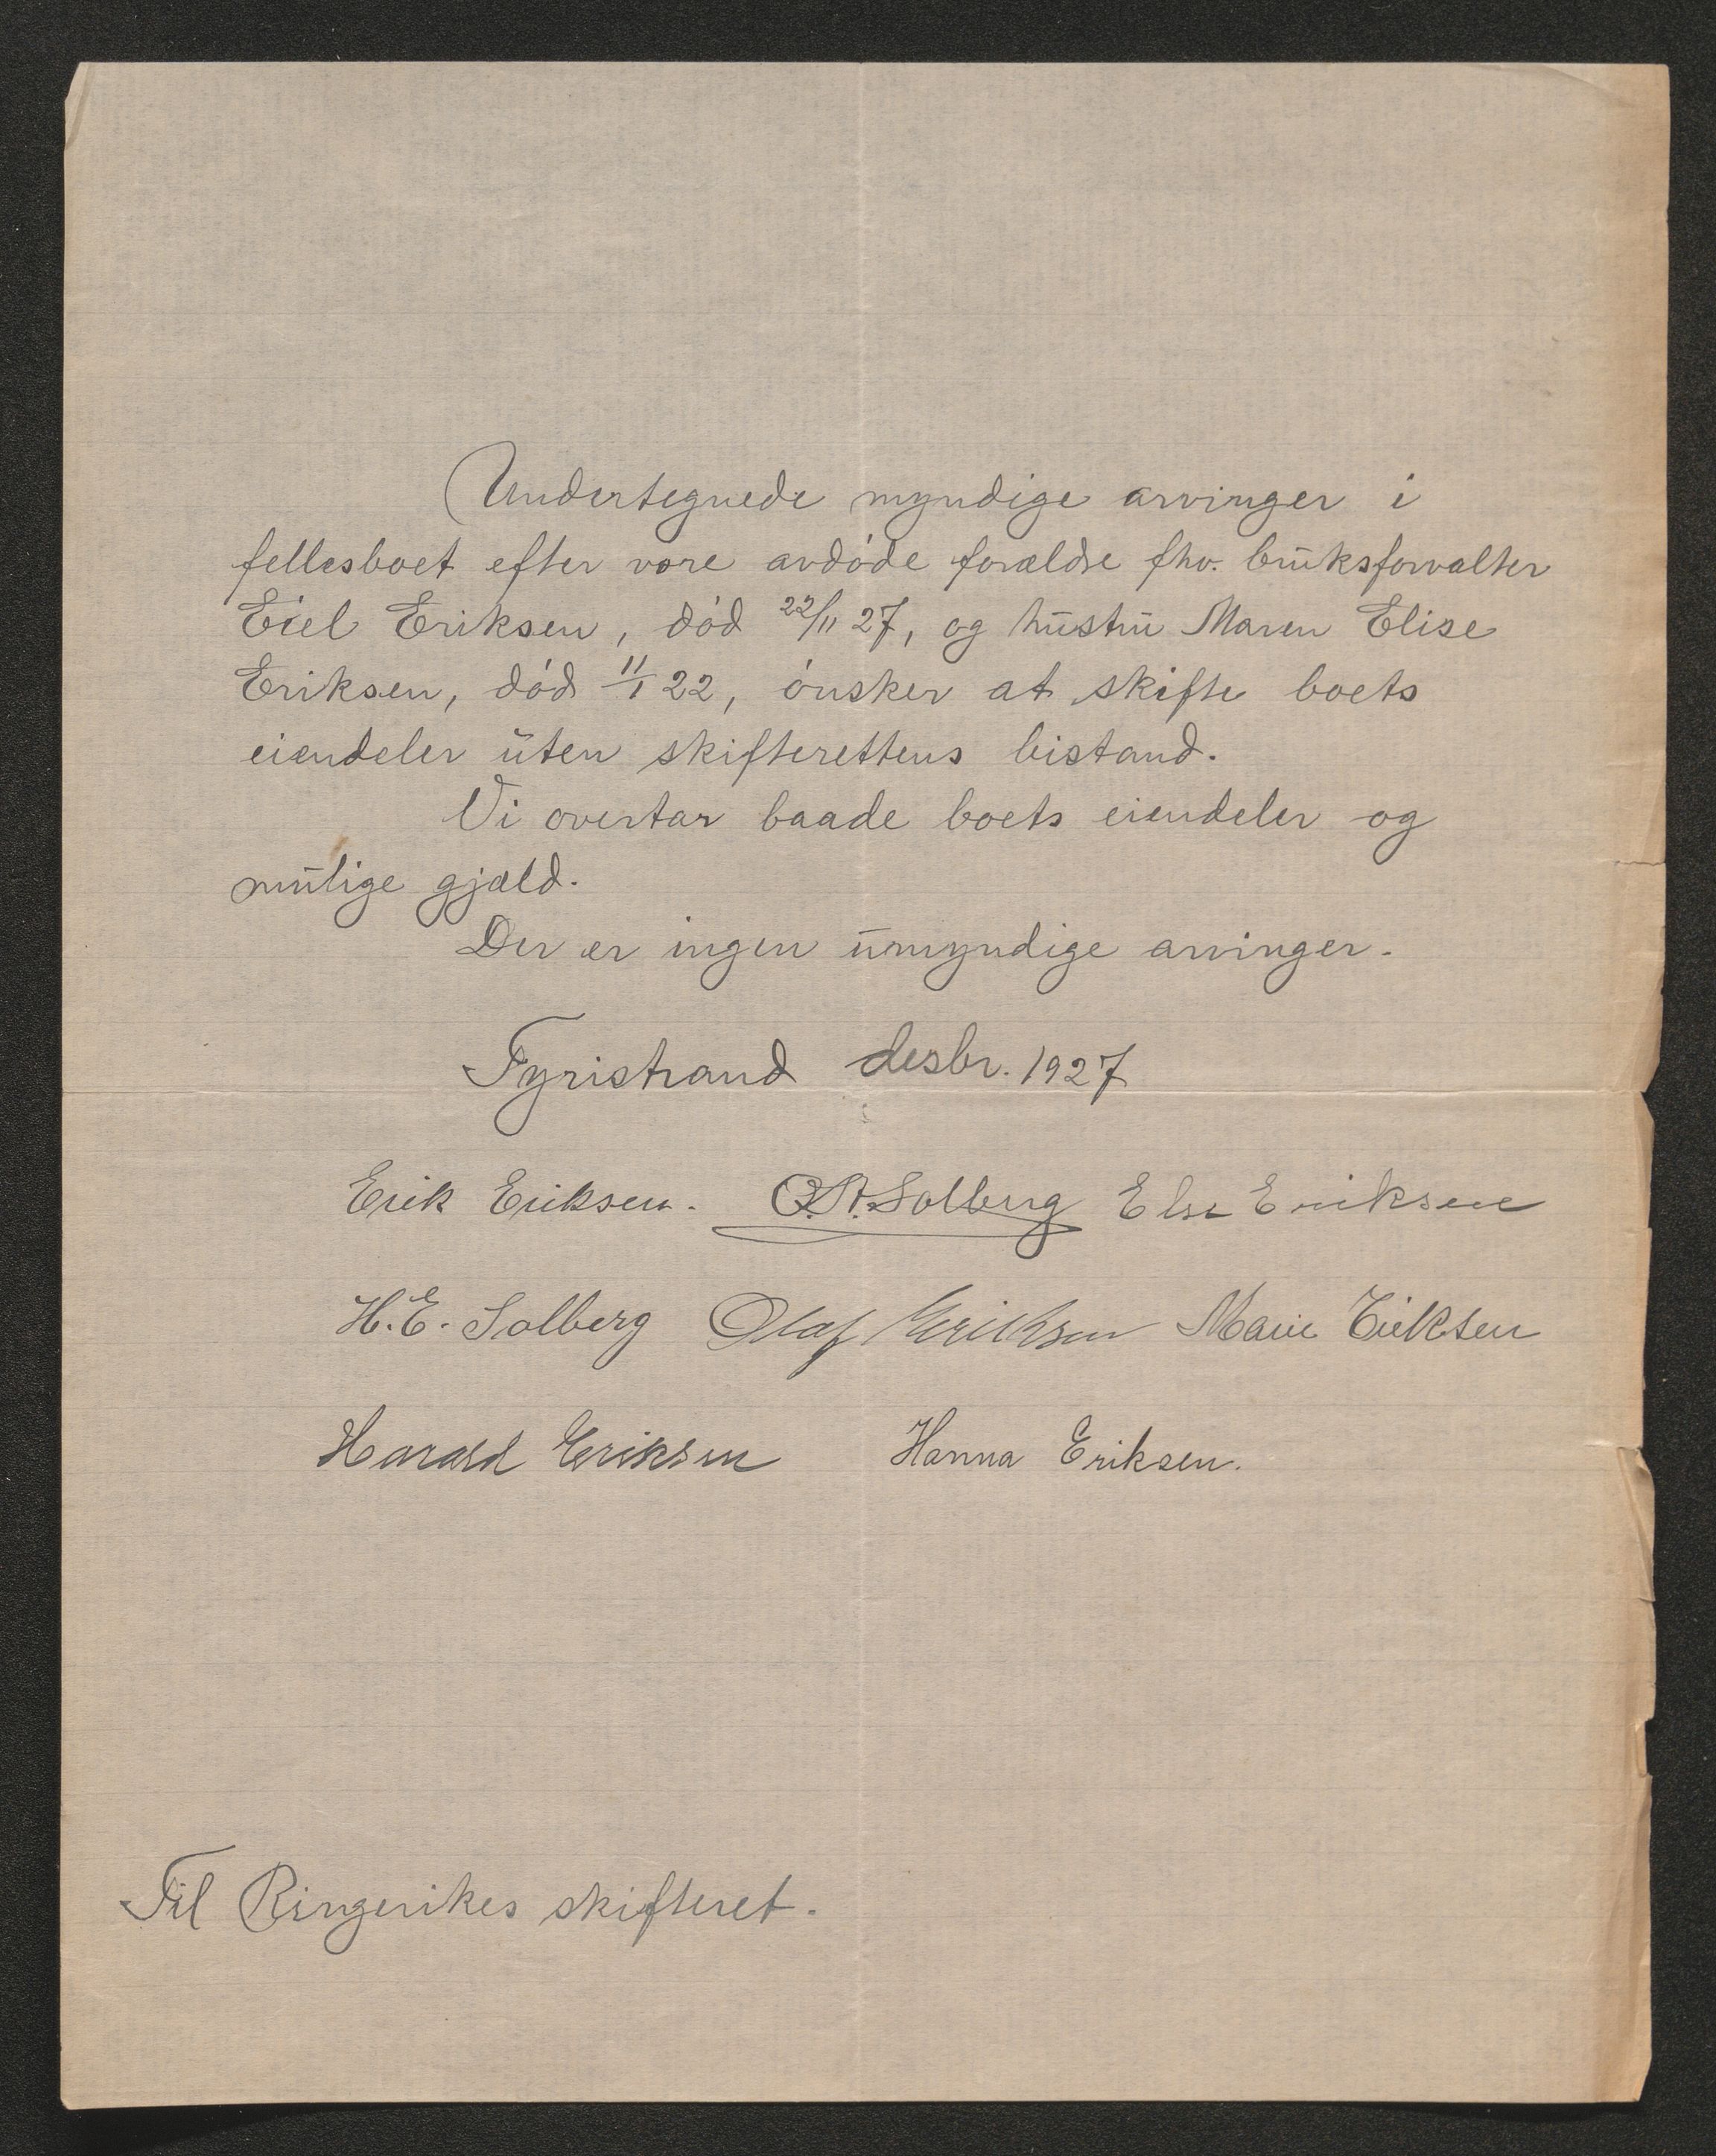 Undertegnede myndige arvinger i
fellesboet efter vore avdøde forældre fhv. bruksforvalter
Eiel Eriksen, død 22/11 27, og hustru Maren Elise
Eriksen, død 11/1 22, ønsker at skifte boets
eiendeler uten skifterettens bistand.
Vi overtar baade boets eiendeler og
mulige gjæld.
Der er ingen umyndige arvinger.
Tyristrand desbr. 1927
Erik Eriksen. Solberg Else Eriksen
H.E. Solberg Olaf Eriksen Marie Eriksen
Harald Eriksen Hanna Eriksen.
Til Ringerikes skifteret.